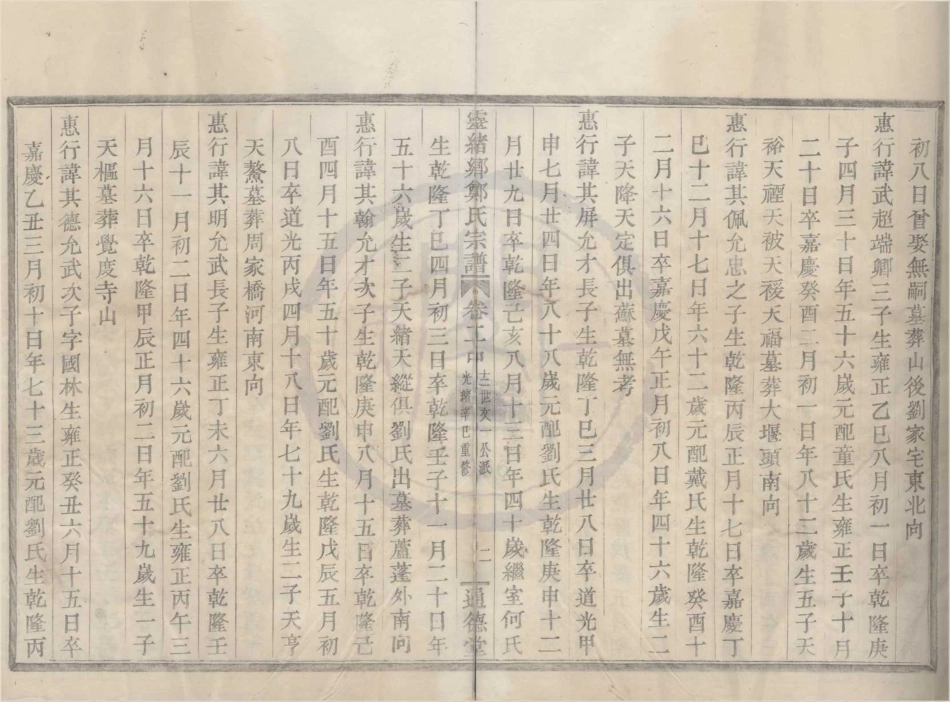 初八日曾娶無嗣墓葬山後劉家宅東北向
惠行諱武超端卿三子生雍正乙巳八月初一日卒乾隆庚
子四月三十日年五十六歲元配童氏生雍正壬子十月
二十日卒嘉慶癸酉二月初一日年八十二歲生五子天
裕天禋天被天禝天福墓葬大堰頭南向
惠行諱其佩允忠之子生乾隆丙辰正月十七日卒嘉慶丁
巳十二月十七日年六十二歲元配戴氏生乾隆癸酉十
二月十六日卒嘉慶戊午正月初八日年四十六歲生二
子天降天定俱出蘇墓無考
惠行諱其屏允才長子生乾隆丁巳三月廿八日卒道光甲
申七月廿四日年八十八歲元配劉氏生乾隆庚申十二
月廿九日卒乾隆己亥八月十三日年四十歲繼室何氏
生乾隆丁巳四月初三日卒乾隆壬子十一月二十日年
五十六歲生二子天緒天縱俱劉氏出墓葬蘆蓬外南向
靈緒鄉鄭氏宗譜 卷二中 光緒辛巳重修 二 通德堂
惠行諱其翰允才次子生乾隆庚申八月十五日卒乾隆己
酉四月十五日年五十歲元配劉氏生乾隆戊辰五月初
八日卒道光丙戌四月十八日年七十九歲生二子天亨
天鰲墓葬周家橋河南東向
惠行諱其明允武長子生雍正丁未六月廿八日卒乾隆壬
辰十一月初二日年四十六歲元配劉氏生雍正丙午三
月十六日卒乾隆甲辰正月初二日年五十九歲生一子
天樞墓葬覺度寺山
惠行諱其德允武次子字國林生雍正癸丑六月十五日卒
嘉慶乙丑三月初十日年七十三歲元配劉氏生乾隆丙